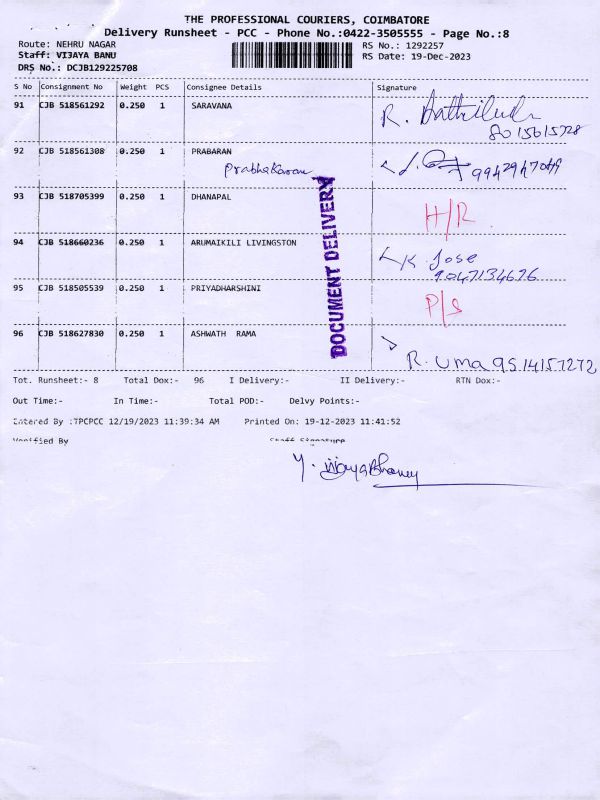 THE PROFESSIONAL COURIERS, COIMBATORE
Delivery Runsheet - PCC - Phone No.:0422-3505555 - Page No.:8
Route: NEHRU NAGAR
RS No.: 1292257
Staff: VIJAYA BANU
RS Date: 19-Dec-2023
DRS No.: DCJB129225708
S No Consignment No Weight PCS Consignee Details Signature
91 CJB 518561292 0.250 1 SARAVANA R.
8015615728
92 CJB 518561308 0.250 1 PRABARAN
Prabhakaran
93 CJB 518705399 0.250 1 DHANAPAL H/R
94 CJB 518660236 0.250 1 ARUMAIKILI LIVINGSTON K. Jose
9047134626
95 CJB 518505539 0.250 1 PRIYADHARSHINI P/S
96 CJB 518627830 0.250 1 ASHWATH RAMA
R. Uma 9514157272
DOCUMENT DELIVERY
Tot. Runsheet:- 8 Total Dox:- 96 I Delivery:- II Delivery:- RTN Dox:-
Out Time:- In Time:- Total POD:- Delvy Points:-
Entered By :TPCPCC 12/19/2023 11:39:34 AM Printed On: 19-12-2023 11:41:52
Verified By Staff Signature